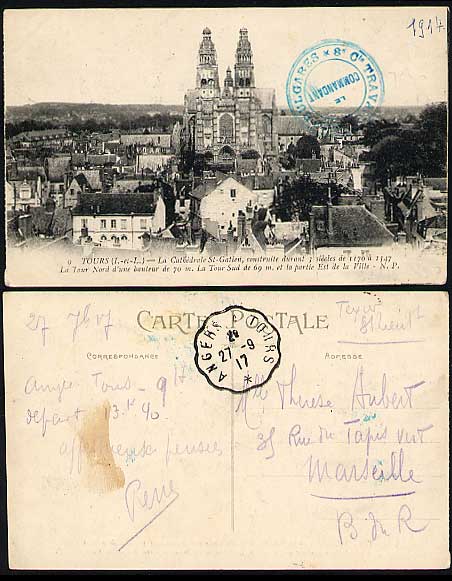 1917
ALGARES * 8e Cie TRAVA
LE
COMMANDANT
9 TOURS (I.-et-L.) — La Cathédrale St-Gatien, construite durant 3 siècles de 1170 à 1547
La Tour Nord d'une hauteur de 70 m. La Tour Sud de 69 m. et la partie Est de la Ville - N. P.
27 7bre 17
CARTE POSTALE
ANGERS A TOURS
27-9
17
CORRESPONDANCE
ADRESSE
Tours - 9h
départ 13h 40
affectueuses pensées
René
Mlle Thérèse Aubert
35 Rue du Tapis vert
Marseille
B du R